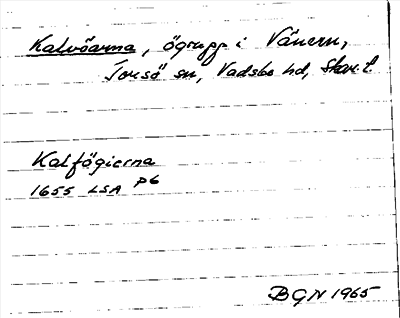 Kalvöarna, ögrupp i Vänern,
Torsö sn, Vadsbo hd, Skar. l.
Kalfögierna
1655 LSA P6
BGN 1965